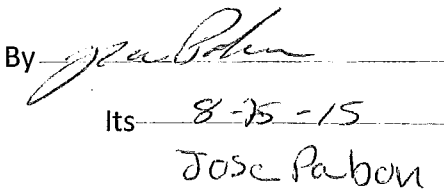 By
Its 8-25-15
Jose Pabon